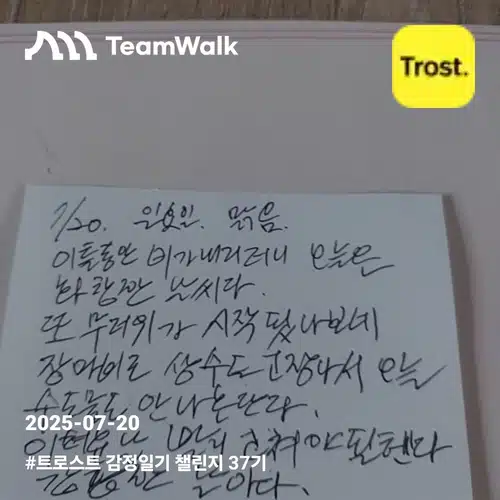 TeamWalk
Trost.
7/20. 일요일. 맑음.
이틀동안 비가내리더니 오늘은
화창한 날씨다.
또 무더위가 시작 됐나보네
장마비로 상수도 고장나서 오늘
수돗물도 안나온단다.
2025-07-20
#트로스트 감정일기 챌린지 37기
날이다.